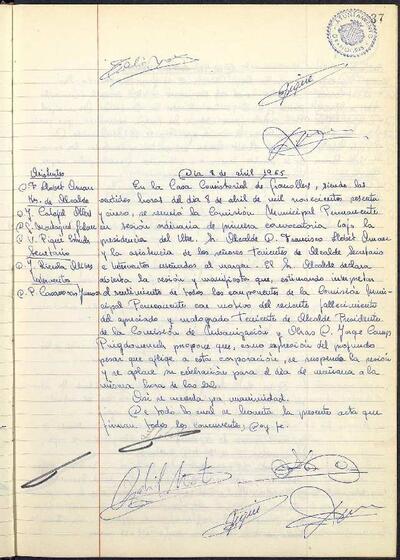 37
AYUNTAMIENTO
GRANOLLERS
Día 8 de abril 1965
Asistentes
D. F. Llobet Arnan
Tte. de Alcalde
Secretario
En la Casa Consistorial de Granollers, siendo las
veintidós horas del día 8 de abril de mil novecientos sesenta
y cinco, se reunió la Comisión Municipal Permanente
en sesión ordinaria de primera convocatoria bajo la
presidencia del Iltre. Sr. Alcalde D. Francisco Llobet Arnan
y la asistencia de los señores Tenientes de Alcalde Secretario
e Interventor reseñados al margen. El Sr. Alcalde declara
abierta la sesión y manifiesta que, estimando interpretar
el sentimiento de todos los componentes de la Comisión Muni-
cipal Permanente con motivo del reciente fallecimiento
del apreciado y malogrado Teniente de Alcalde Presidente
de la Comisión de Urbanización y Obras D. Jorge Camps
Puigdomenech propone que, como expresión del profundo
pesar que aflige a esta corporación, se suspenda la sesión
y se aplace su celebración para el día de mañana a la
misma hora de las 22.
Así se acuerda por unanimidad.
De todo lo cual se levanta la presente acta que
firman todos los concurrentes, doy fe.